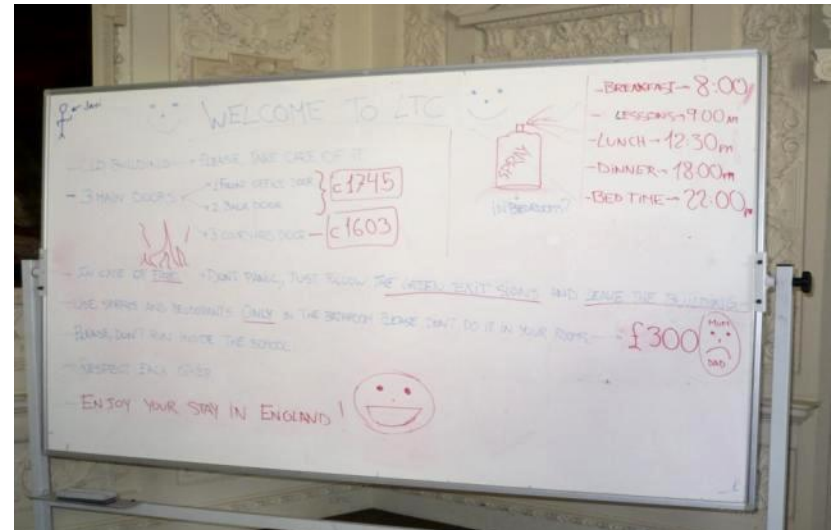 WELCOME TO LTC
- OLD BUILDING → PLEASE TAKE CARE OF IT
- 3 MAIN DOORS
→ 1 FRONT OFFICE DOOR
→ 2 BACK DOOR
c1745
→ 3 COURTYARD DOOR — c1603
IN BEDROOMS?
- BREAKFAST → 8:00
- LESSONS → 9:00 AM
- LUNCH → 12:30 pm
- DINNER → 18:00 pm
- BED TIME → 22:00 pm
- IN CASE OF FIRE → DON'T PANIC, JUST FOLLOW THE GREEN EXIT SIGNS AND LEAVE THE BUILDING
- USE SPRAYS AND DEODORANTS ONLY IN THE BATHROOM PLEASE, DON'T DO IT IN YOUR ROOMS — £300
MUM
DAD
- PLEASE, DON'T RUN INSIDE THE SCHOOL
- RESPECT EACH OTHER
- ENJOY YOUR STAY IN ENGLAND!